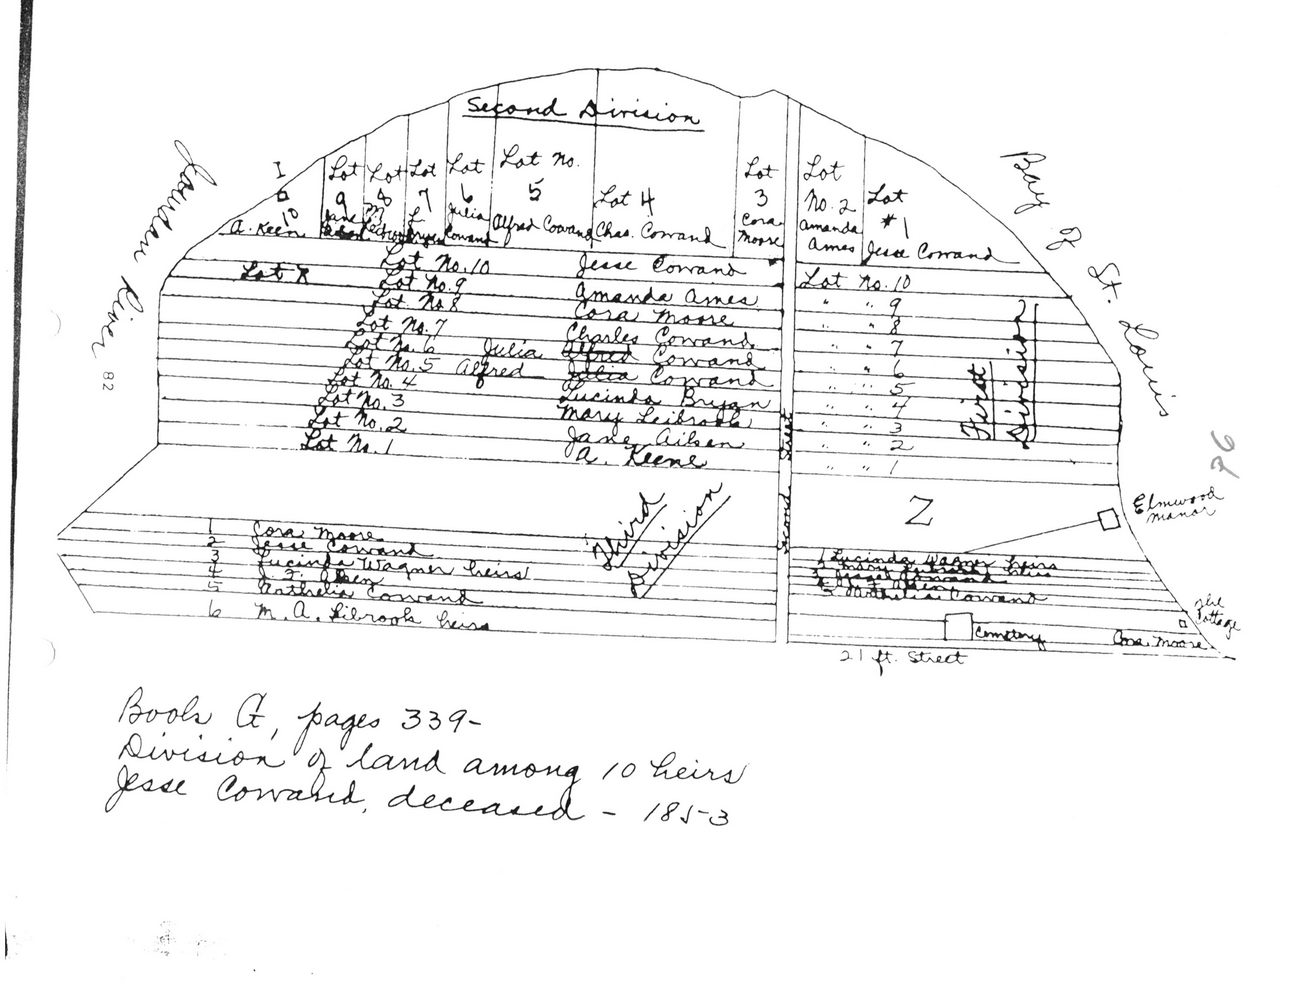 Second Division
Jordan River
82
Bay of St. Louis
I
10
A. Keen
Lot
9
Jane
Lot
8
M
Lot
7
L.
Lot
6
Julia
Cowand
Lot No.
5
Alfred Cowand
Lot 4
Chas. Cowand
Lot
3
Cora
Moore
Lot
No. 2
Amanda
Ames
Lot
#1
Jesse Cowand
Lot No. 10 Jesse Cowand
Lot No. 9 Amanda Ames
Lot No. 8 Cora Moore
Lot No. 7 Charles Cowand
Lot No. 6 Julia Alfred Cowand
Lot No. 5 Alfred Julia Cowand
Lot No. 4 Lucinda Bryan
Lot No. 3 Mary Leibrook
Lot No. 2 Jane Ailsen
Lot No. 1 A. Keene
Lot No. 10
" " 9
" " 8
" " 7
" " 6
" " 5
" " 4
" " 3
" " 2
" " 1
First
Division
Second Street
Third
Division
Z
Elmwood
Manor
1 Cora Moore
2 Jesse Cowand
3 Lucinda Wagner heirs
4
5 Arthelia Cowand
6 M. A. Librook heirs
1 Lucinda Wagner heirs
5 Arthelia Cowand
Cemetery
Cottage
Cora Moore
21 ft. Street
Book G, pages 339-
Division of land among 10 heirs
Jesse Cowand, deceased - 1853